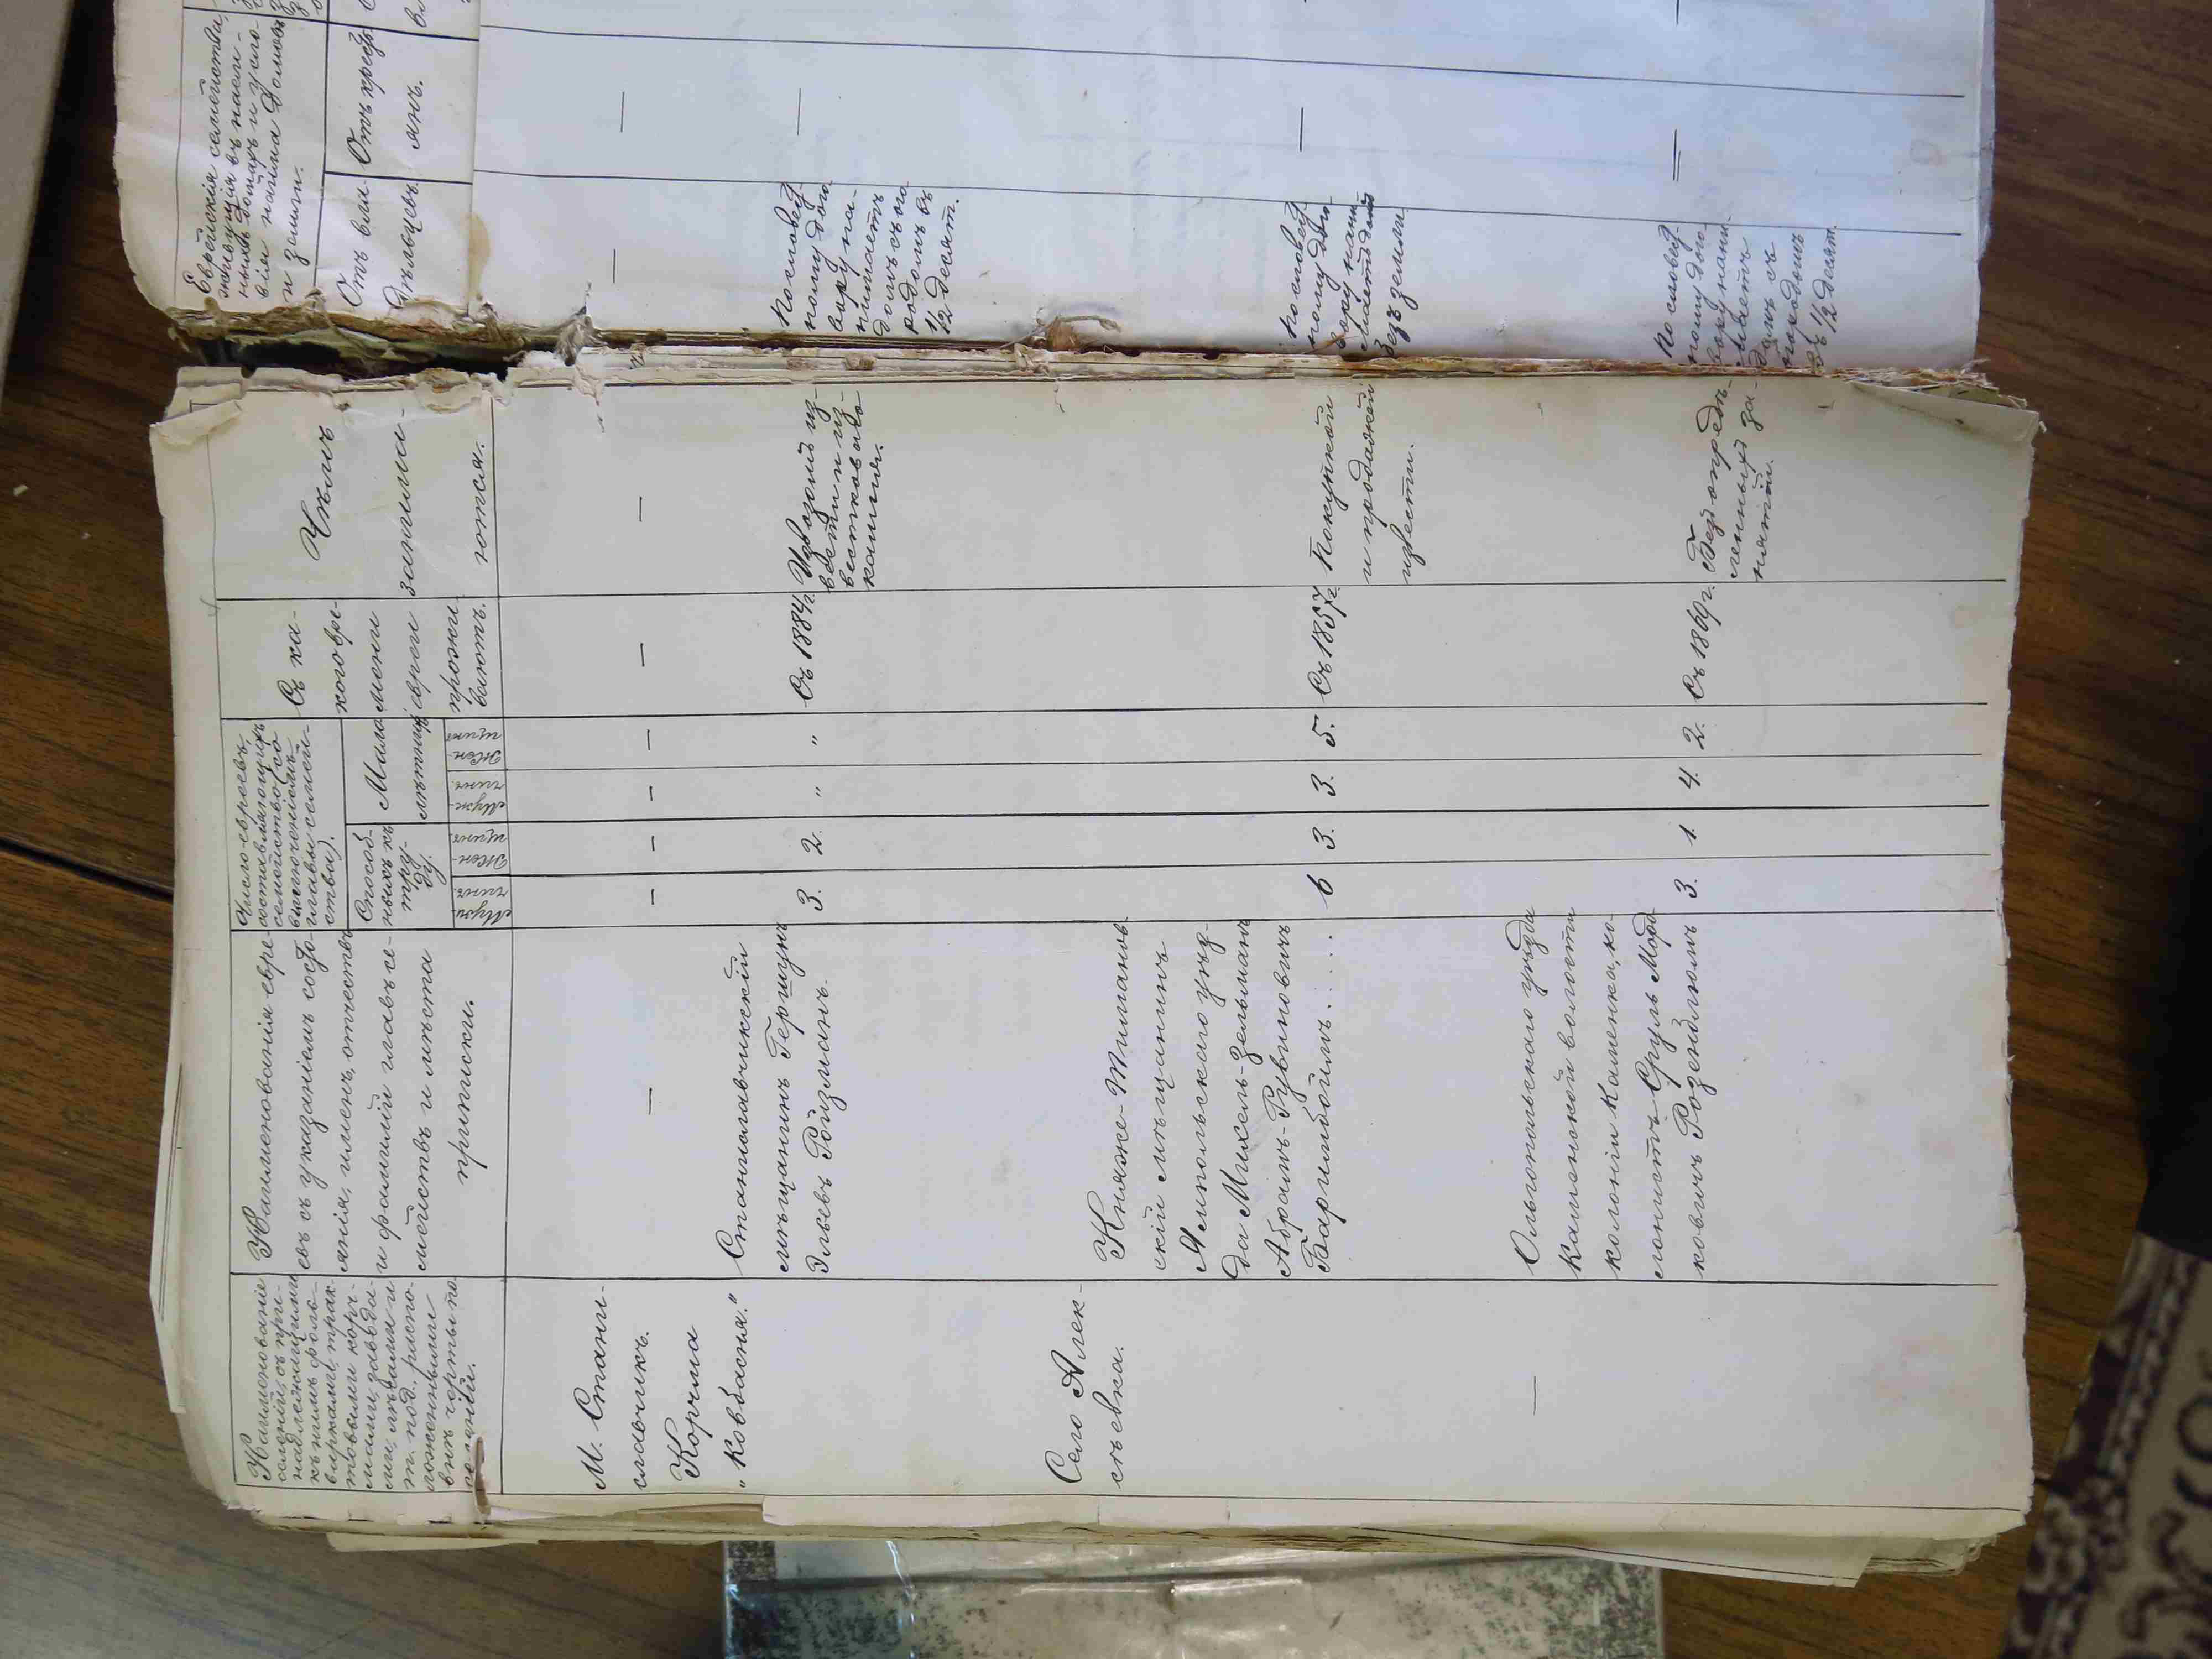 Наименованіе
селеній, съ при-
надлежащими
къ нимъ фоль-
варками, трак-
товыми корч-
мами, завода-
ми, лѣсами и
т. под. распо-
ложенными
внѣ черты по-
селеній.
Наименованія евре-
евъ съ указаніемъ состо-
янія, именъ, отчествъ
и фамилій главъ се-
мействъ и мѣста
приписки.
Число евреевъ,
составляющихъ
семейство (со
включеніемъ
главы семей-
ства).
Способ-
ныхъ къ
тру-
ду.
Мало
лѣтнихъ
Мущ-
чинъ.
Жен-
щинъ
Мущ-
чинъ.
Жен-
щинъ
Съ ка-
кого вре-
мени
евреи
прожи-
ваютъ.
Чѣмъ
занима-
ются.
Еврейскія семейства,
живущія въ наем-
ныхъ домахъ и усло-
вія найма домовъ
и земли.
Отъ вла-
дѣльцевъ.
Отъ кресть
янъ.
М. Стани-
славчикъ.
— — — — — — — — —
Корчма
„Ковбасня."
Станиславчикскій
мѣщанинъ Гершунъ
Эльевъ Ройзманъ.
3. 2. „ „
Съ 1884 г.
Извозомъ из-
вести и из-
вестковаго
камня.
По словес-
ному дого
вору на-
нимаетъ
домъ съ ого
родомъ въ
1/2 десят.
—
Село Алек-
сѣевка.
Княже-
скій мѣщанинъ
Ямпольскаго уѣз-
да Михель-Зельманъ
Абрамъ-Рувиновичъ
Баримбоймъ......
6 3. 3. 5.
Съ 1857 г.
Покупкой
и продажей
извести.
По словес-
ному дого
вору нани-
маетъ домъ
безъ земли.
—
—
Ольгопольскаго уѣзда
Каменской волости
колоніи Каменка, ко-
лонистъ Сруль Морд
ковичъ Розенблюмъ
3. 1. 4. 2.
Съ 1860 г.
Безъ опредѣ-
ленныхъ за-
нятій.
По словес-
ному дого-
вору нани-
маетъ
домъ съ
огородомъ
въ 1/2 десят.
=